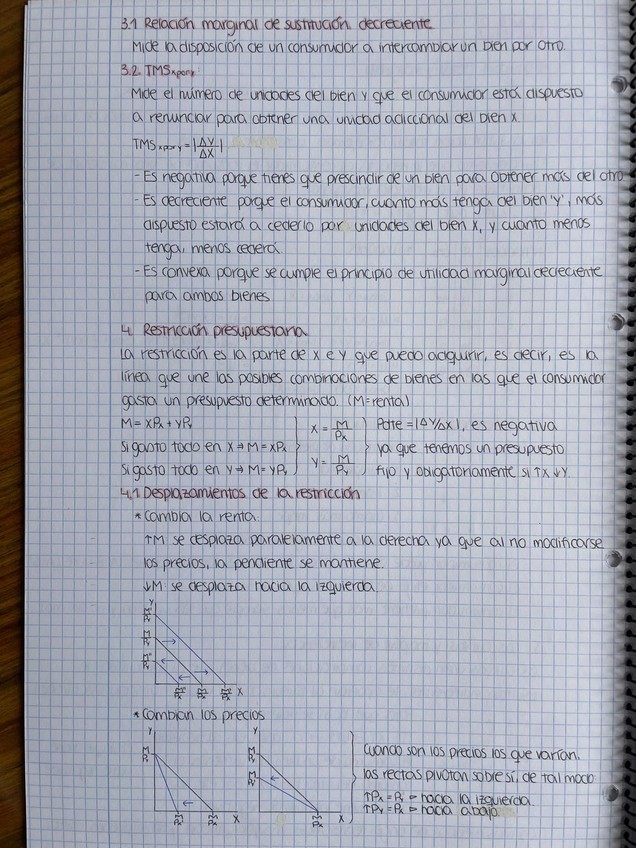 3.1 Relación marginal de sustitución decreciente
Mide la disposición de un consumidor a intercambiar un bien por otro.
3.2. TMSxpory:
Mide el número de unidades del bien Y que el consumidor está dispuesto
a renunciar para obtener una unidad adiccional del bien X.
TMSxpory = |ΔY/ΔX|
- Es negativa porque tienes que prescindir de un bien para obtener más del otro
- Es decreciente porque el consumidor, cuanto más tenga del bien 'Y', más
dispuesto estará a cederlo por unidades del bien X, y cuanto menos
tenga, menos cederá.
- Es convexa porque se cumple el principio de utilidad marginal decreciente
para ambos bienes
4. Restricción presupuestaria
La restricción es la parte de X e Y que puedo adquirir, es decir, es la
línea que une las posibles combinaciones de bienes en las que el consumidor
gasta un presupuesto determinado. (M=renta)
M = XPx + YPy
Si gasto todo en X → M = XPx
Si gasto todo en Y → M = YPy
X = M/Px
Y = M/Py
Pdte = |ΔY/ΔX|, es negativa
ya que tenemos un presupuesto
fijo y obligatoriamente si ↑X ↓Y
4.1 Desplazamientos de la restricción
* Cambia la renta
↑M se desplaza paralelamente a la derecha ya que al no modificarse
los precios, la pendiente se mantiene.
↓M se desplaza hacia la izquierda
Y
X
* Cambian los precios
Y
M/Py
X
Y
X
Cuando son los precios los que varían.
las rectas pivotan sobre sí, de tal modo
↑Px = Py ⇒ hacia la izquierda.
↑Py = Px ⇒ hacia abajo